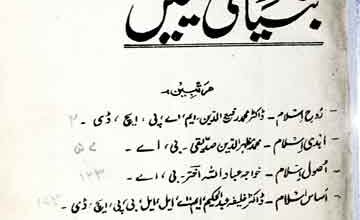 بنیادی
مرتبین۔
روحِ اسلام ۔ ڈاکٹر محمد رفیع الدین، ایم، اے، پی، ایچ، ڈی ۔ ۲
محمد مظہر الدین صدیقی ۔ بی، اے ۔ ۷۵
اصولِ اسلام ۔ خواجہ عباد اللہ اختر ۔ بی، اے ۔ ۱۲۳
اساسِ اسلام ۔ ڈاکٹر خلیفہ عبدالحکیم ایم، اے، ایل، ایل، بی، پی، ایچ، ڈی ۔